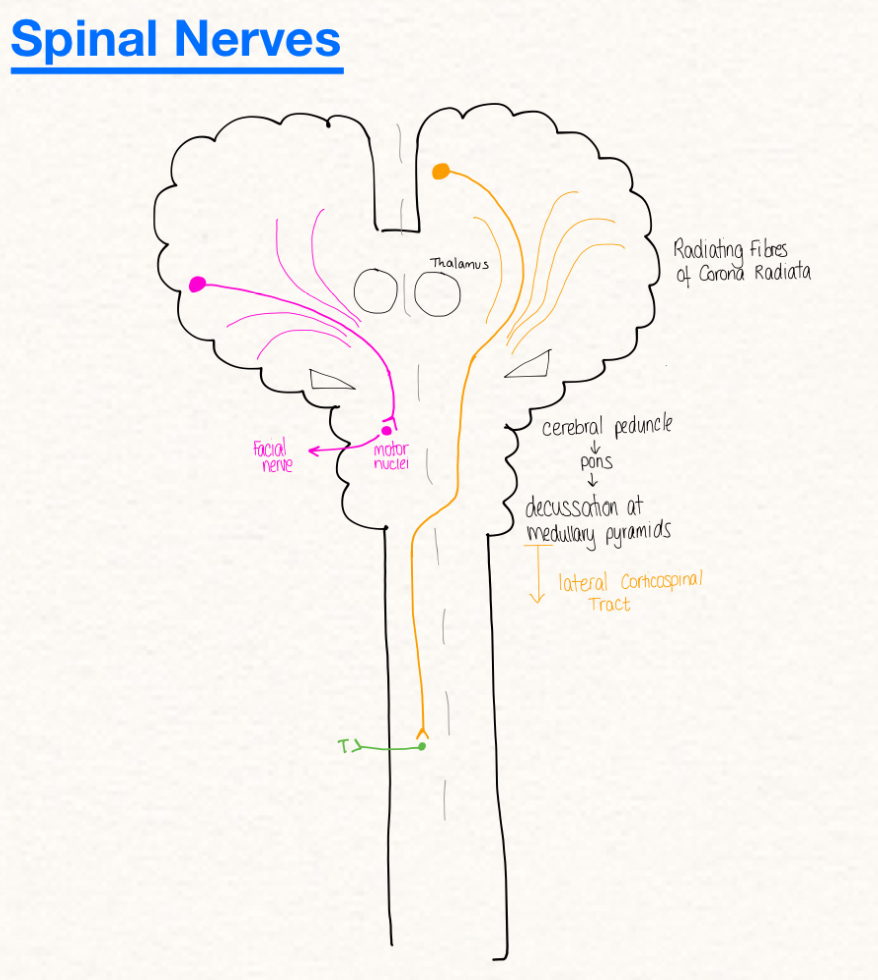 Spinal Nerves
Thalamus
Radiating Fibres
of Corona Radiata
cerebral peduncle
↓
pons
↓
decussation at
medullary pyramids
lateral Corticospinal
Tract
Facial
nerve
motor
nuclei
T